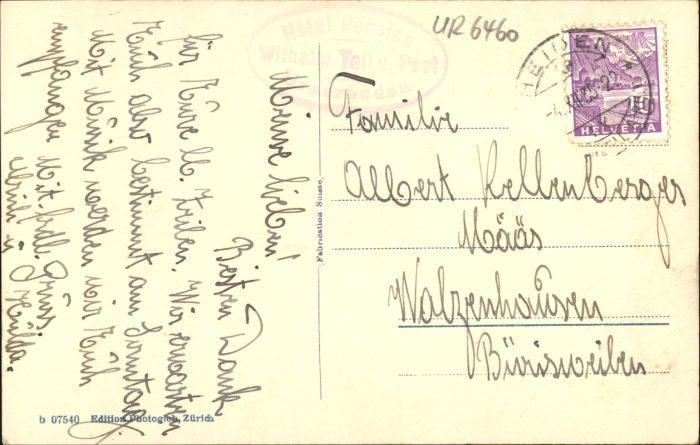 UR 6460
Hôtel Pension
Wilhelm Tell u. Post
HELVETIA
Meine Lieben!
Besten Dank
für Eure lb. Zeilen. Wir erwarten
Euch also bestimmt am Sonntag.
Mit Musik werden wir Euch
empfangen. Mit frdl. Grüss.
u. Hulda.
Fabrication Suisse
Familie
Albert Kellenberger
Määs
Walzenhausen
b 07540 Edition Photoglob, Zürich